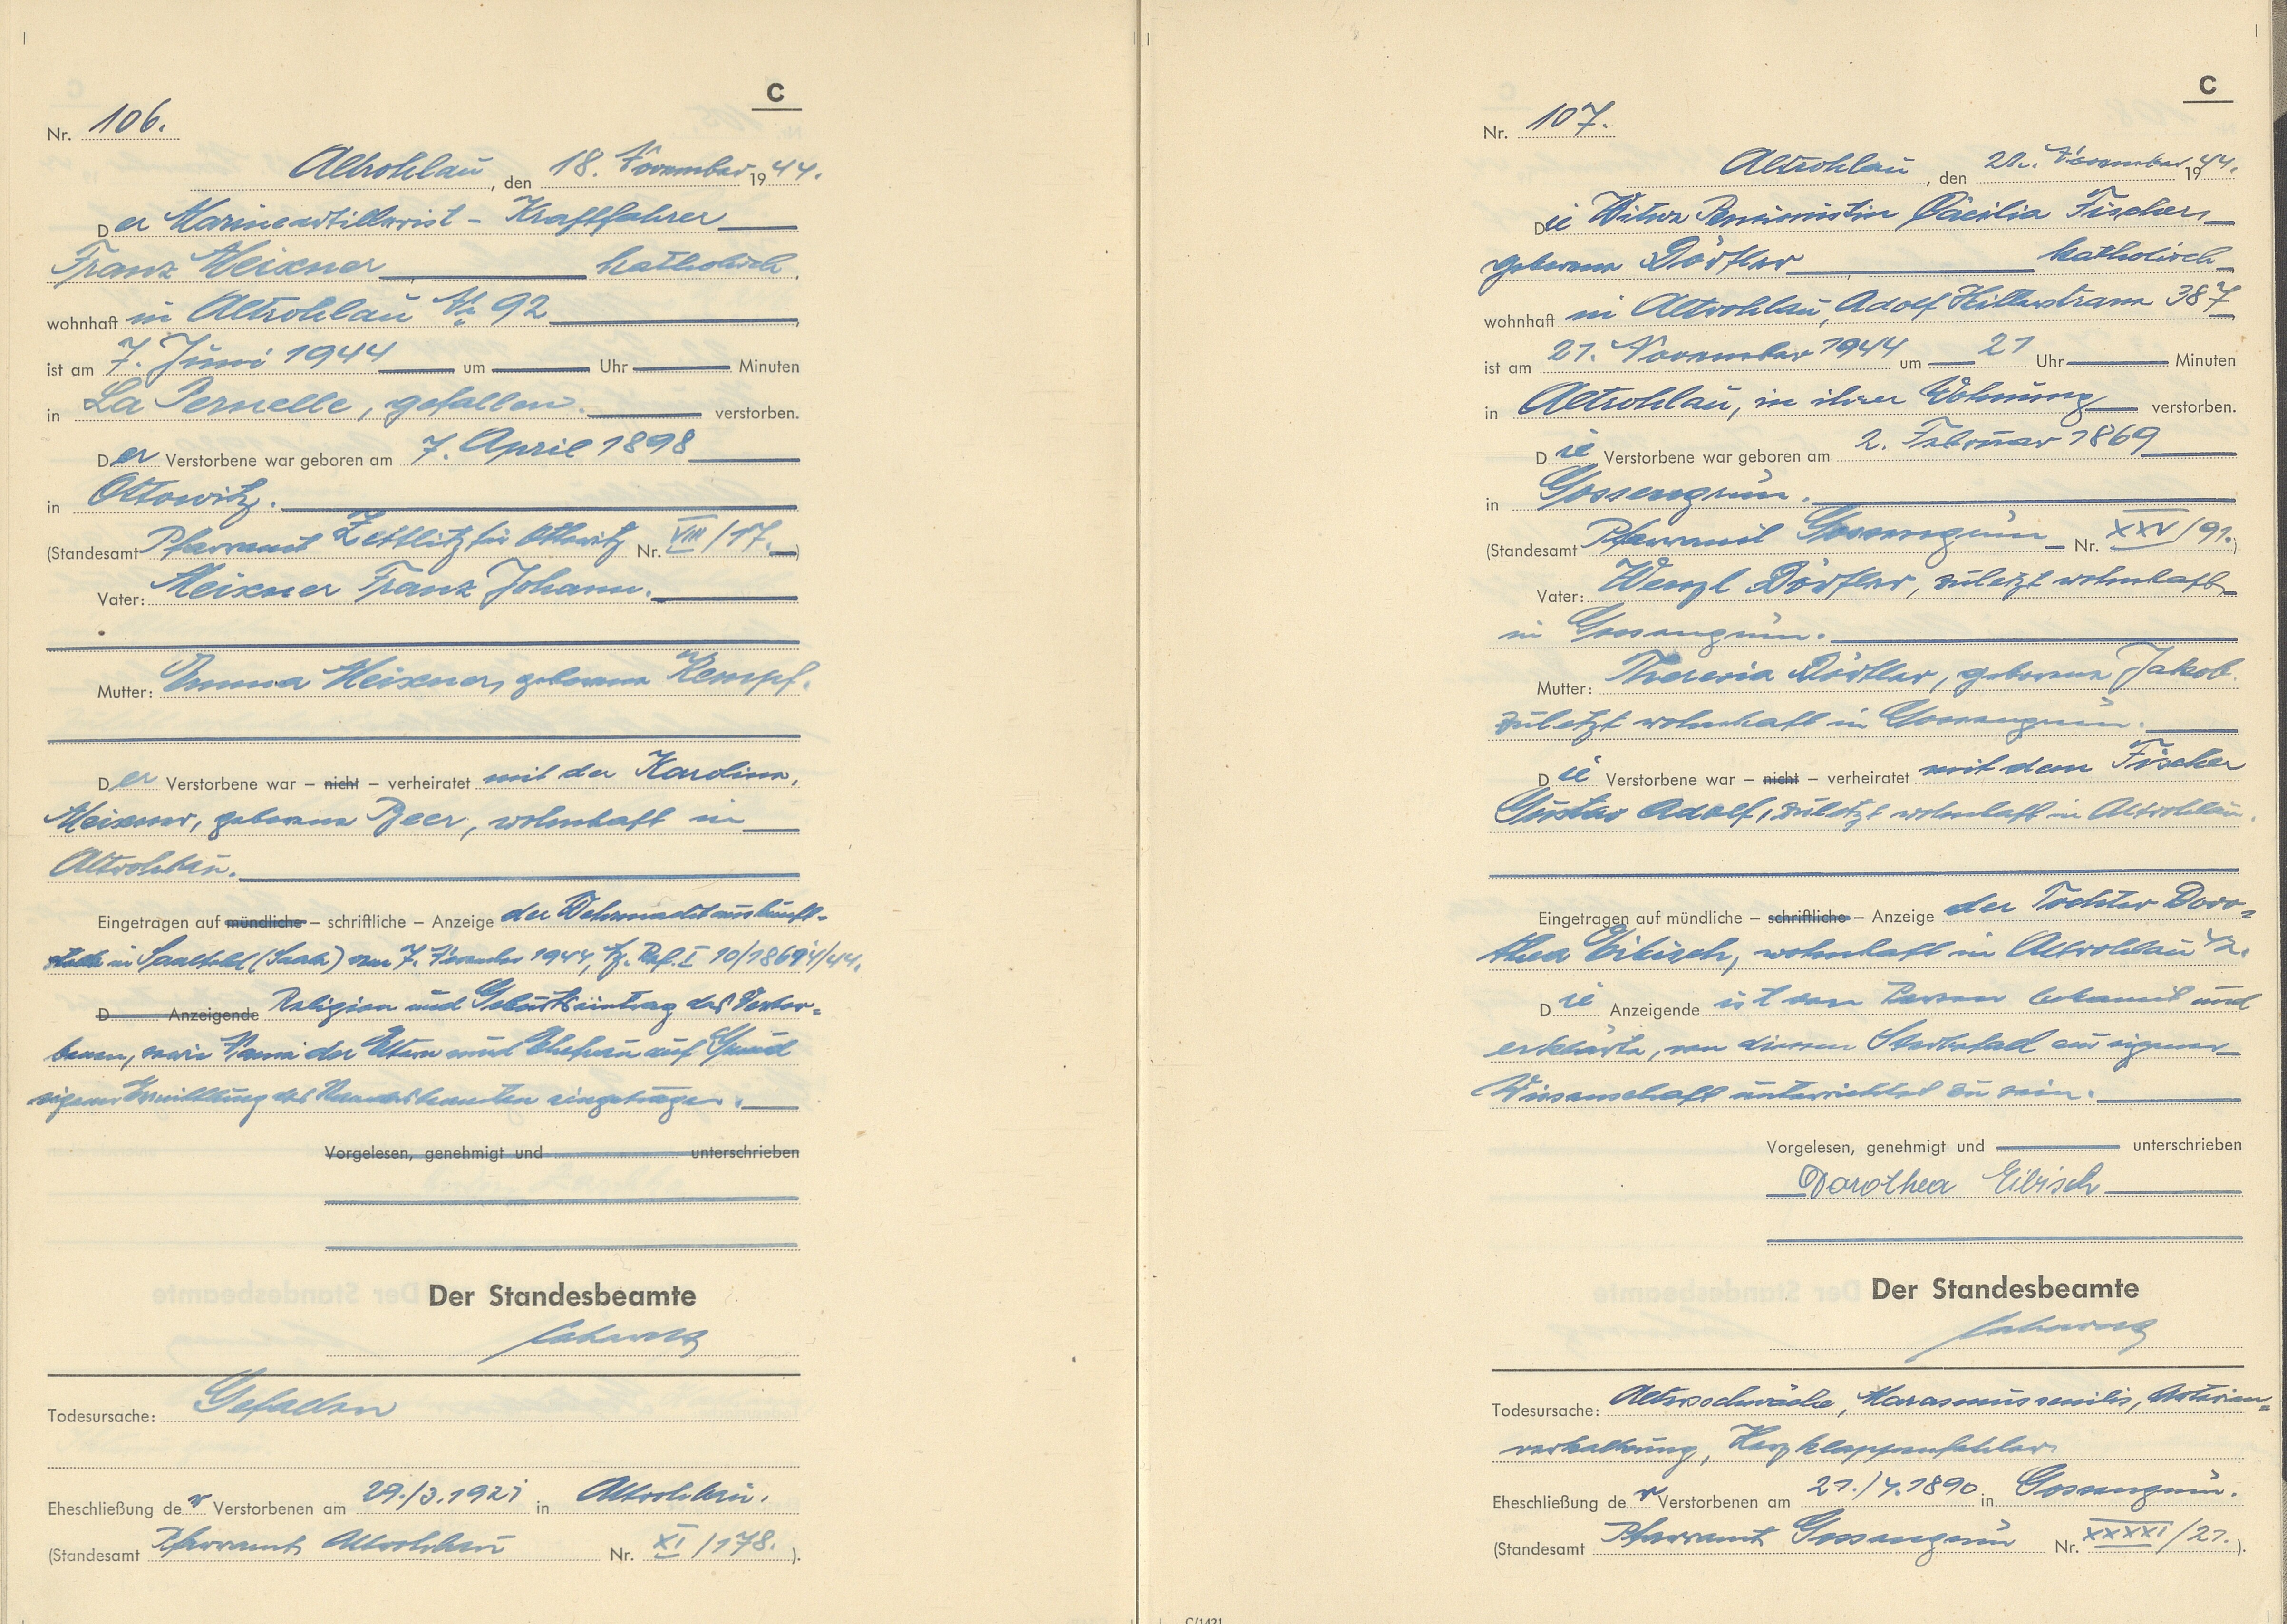 C
Nr. 106.
Altrohlau, den 18. November 1944.
Der Marineartillerist - Kraftfahrer
Franz Meixner katholisch,
wohnhaft in Altrohlau Nr. 92
ist am 7. Juni 1944 um Uhr Minuten
in La Pernelle, gefallen. verstorben.
Der Verstorbene war geboren am 7. April 1898
in Ottowitz.
(Standesamt Pfarramt Zettlitz für Ottowitz Nr. VIII/17.)
Vater: Meixner Franz Johann.
Mutter: Emma Meixner, geborene Kempf.
Der Verstorbene war – nicht – verheiratet mit der Karolina,
Meixner, geborene Beer, wohnhaft in
Altrohlau.
Eingetragen auf mündliche – schriftliche – Anzeige der Wehrmachtauskunft-
stelle in Saalfeld (Saale) vom 7. November 1944, Ref. I 10/1869
D Anzeigende Religion und Geburtseintrag des Verstor-
benen, sowie Namen der Eltern und Ehefrau auf Grund
eigener Ermittlung des Standesbeamten eingetragen.
Vorgelesen, genehmigt und unterschrieben
Der Standesbeamte
Todesursache: Gefallen
Eheschließung der Verstorbenen am 29./3.1921 in Altrohlau.
(Standesamt Pfarramt Altrohlau Nr. XI/178.).
C
Nr. 107.
Altrohlau, den 22. November 1944.
Die Witwe Pensionistin Cäcilia Fischer,
geborene Dörfler katholisch
wohnhaft in Altrohlau, Adolf Hitlerstrasse 387
ist am 21. November 1944 um 21 Uhr Minuten
in Altrohlau, in ihrer Wohnung verstorben.
Die Verstorbene war geboren am 2. Februar 1869
in Gossengrün.
(Standesamt Pfarramt Gossengrün Nr. XXV/91.)
Vater: Wenzl Dörfler, zuletzt wohnhaft
in Gossengrün.
Mutter: Theresia Dörfler, geborene Jakob.
zuletzt wohnhaft in Gossengrün.
Die Verstorbene war – nicht – verheiratet mit dem Fischer
Gustav Adolf, zuletzt wohnhaft in Altrohlau.
Eingetragen auf mündliche – schriftliche – Anzeige der Tochter Doro-
thea Eibisch, wohnhaft in Altrohlau
Die Anzeigende ist von Person bekannt und
erklärte, von diesem Sterbefall aus eigener
Wissenschaft unterrichtet zu sein.
Vorgelesen, genehmigt und unterschrieben
Dorothea Eibisch
Der Standesbeamte
Todesursache: Altersschwäche, Marasmus senilis, Arterien-
verkalkung, Herzklappenfehler
Eheschließung der Verstorbenen am 21./4.1890 in Gossengrün.
(Standesamt Pfarramt Gossengrün Nr. XXXXI/21.).
C/1421